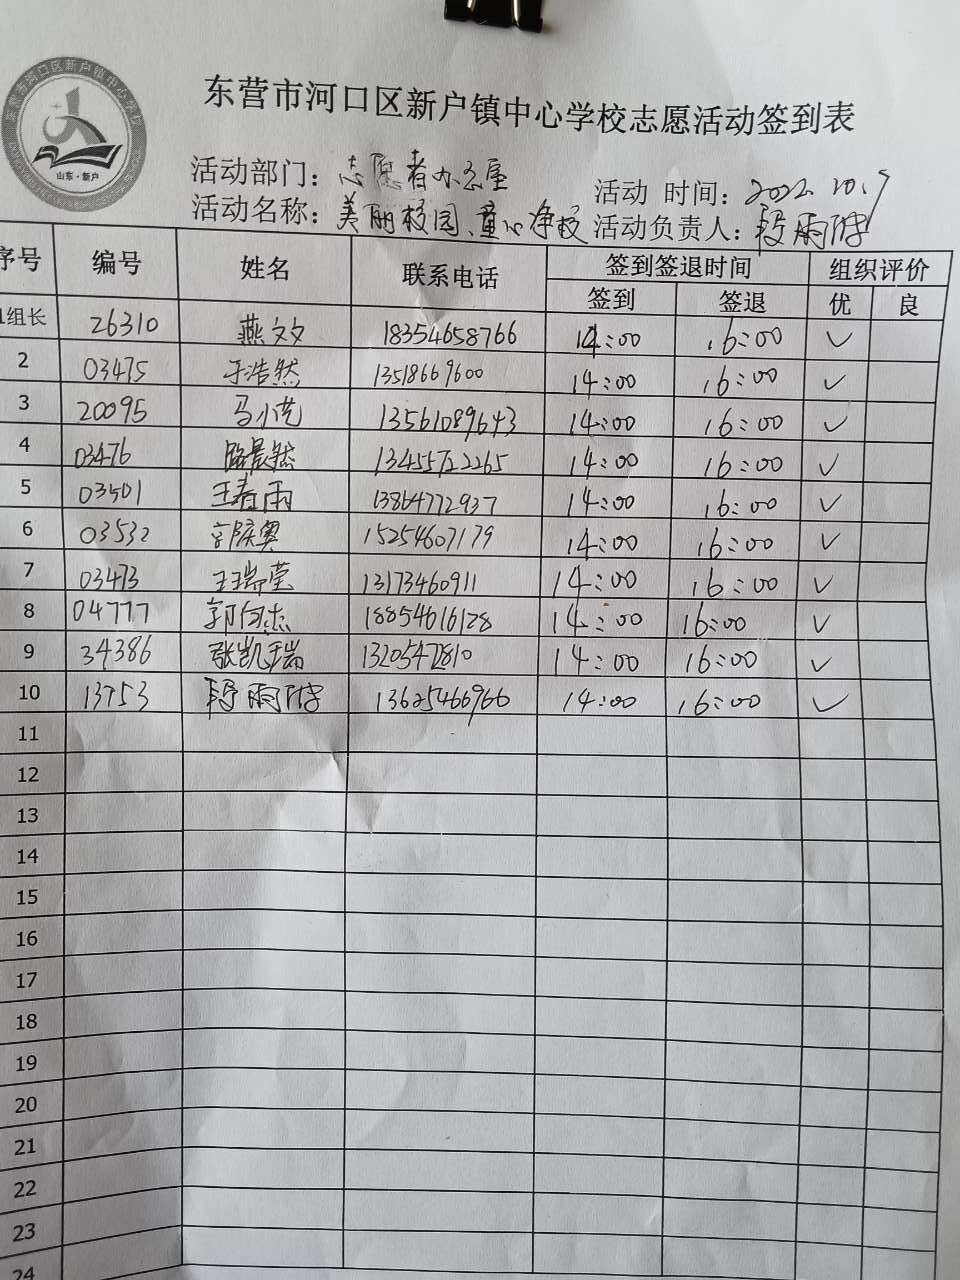 东营市河口区新户镇中心学校志愿活动签到表
山东·新户
活动部门：志愿者办公室 活动 时间：2022.10.9
活动名称：美丽校园、童心净校 活动负责人：段雨
序号 编号 姓名 联系电话 签到签退时间 组织评价
签到 签退 优 良
1组长 26310 燕文文 18354658766 14:00 16:00 ✓
2 03475 于浩然 13518669600 14:00 16:00 ✓
3 20095 马小艺 13561089643 14:00 16:00 ✓
4 03476 路晨然 13455722265 14:00 16:00 ✓
5 03501 王春雨 13864772937 14:00 16:00 ✓
6 03532 15254607179 14:00 16:00 ✓
7 03473 王瑞莹 13173460911 14:00 16:00 ✓
8 04777 郭向杰 18854616128 14:00 16:00 ✓
9 34386 张凯瑞 13205472810 14:00 16:00 ✓
10 13753 段雨 13625466966 14:00 16:00 ✓
11
12
13
14
15
16
17
18
19
20
21
22
23
24